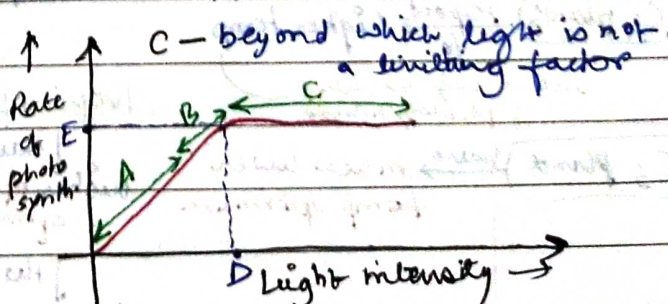 C — beyond which light is not
a limiting factor
C
B
Rate
E
of
photo
synth.
A
D
Light intensity →